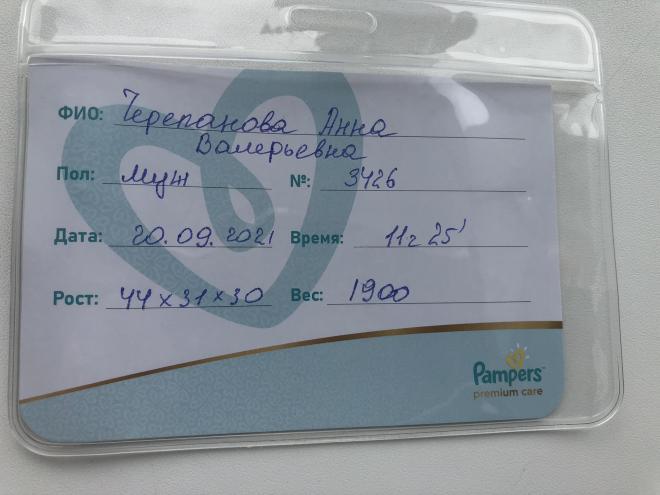 ФИО: Черепанова Анна
Валерьевна
Пол: муж №: 3426
Дата: 20.09.2021 Время: 11 г 25'
Рост: 44 x 31 x 30 Вес: 1900
Pampers
premium care